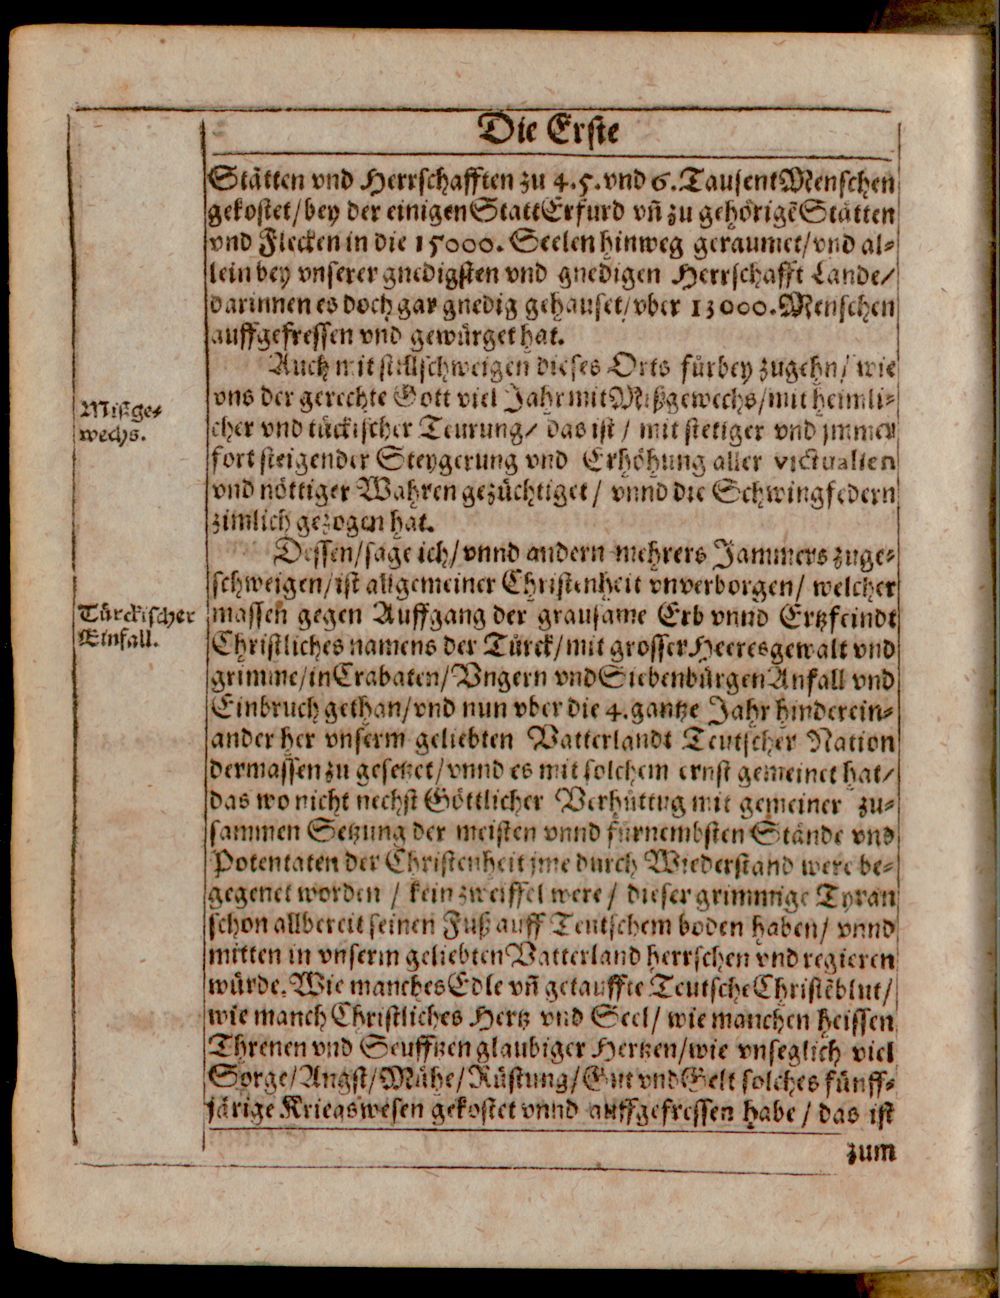 Die Erste
Stätten vnd Herrschafften zu 4. 5. vnd 6. Tausent Menschen
gekostet/ bey der einigen Statt Erfurd vñ zu gehörigẽ Stätten
vnd Flecken in die 15000. Seelen hinweg geraumet/ vnd al-
lein bey vnserer gnedigsten vnd gnedigen Herrschafft Lande/
darinnen es doch gar gnedig gehauset/ vber 13000. Menschen
auffgefressen vnd gewürget hat.
Auch mit stillschweigen dieses Orts fürbey zugehn/ wie
vns der gerechte Gott viel Jahr mit Mißgewechs/ mit heimli-
cher vnd tückischer Teurung/ das ist / mit stetiger vnd jmmer
fort steigender Steygerung vnd Erhöhung aller victualien
vnd nöttiger Wahren gezüchtiget / vnnd die Schwingfedern
zimlich gezogen hat.
Mißge-
wechs.
Dessen/ sage ich/ vnnd andern mehrers Jammers zuge-
schweigen/ ist allgemeiner Christenheit vnverborgen/ welcher
massen gegen Auffgang der grausame Erb vnnd Ertzfeindt
Christliches namens der Türck/ mit grosser Heeresgewalt vnd
grimme/ in Crabaten/ Vngern vnd Siebenbürgen Anfall vnd
Einbruch gethan/ vnd nun vber die 4. gantze Jahr hinderein-
ander her vnserm geliebten Vatterlandt Teutscher Nation
dermassen zu gesetzet/ vnnd es mit solchem ernst gemeinet hat/
das wo nicht nechst Göttlicher Verhüttug mit gemeiner zu-
sammen Setzung der meisten vnnd fürnembsten Stände vnd
Potentaten der Christenheit jme durch Wiederstand were be-
gegenet worden / kein zweiffel were / dieser grimmige Tyran
schon allbereit seinen Fuß auff Teutschem boden haben/ vnnd
mitten in vnserm geliebten Vatterland herrschen vnd regieren
würde. Wie manches Edle vñ getauffte Teutsche Christẽblut/
wie manch Christliches Hertz vnd Seel/ wie manchen heissen
Threnen vnd Seufftzen glaubiger Hertzen/ wie vnseglich viel
Sorge/ Angst/ Mühe/ Rüstung/ Gut vnd Gelt solches fünff-
järige Kriegswesen gekostet vnnd auffgefressen habe / das ist
Türckischer
Einfall.
zum